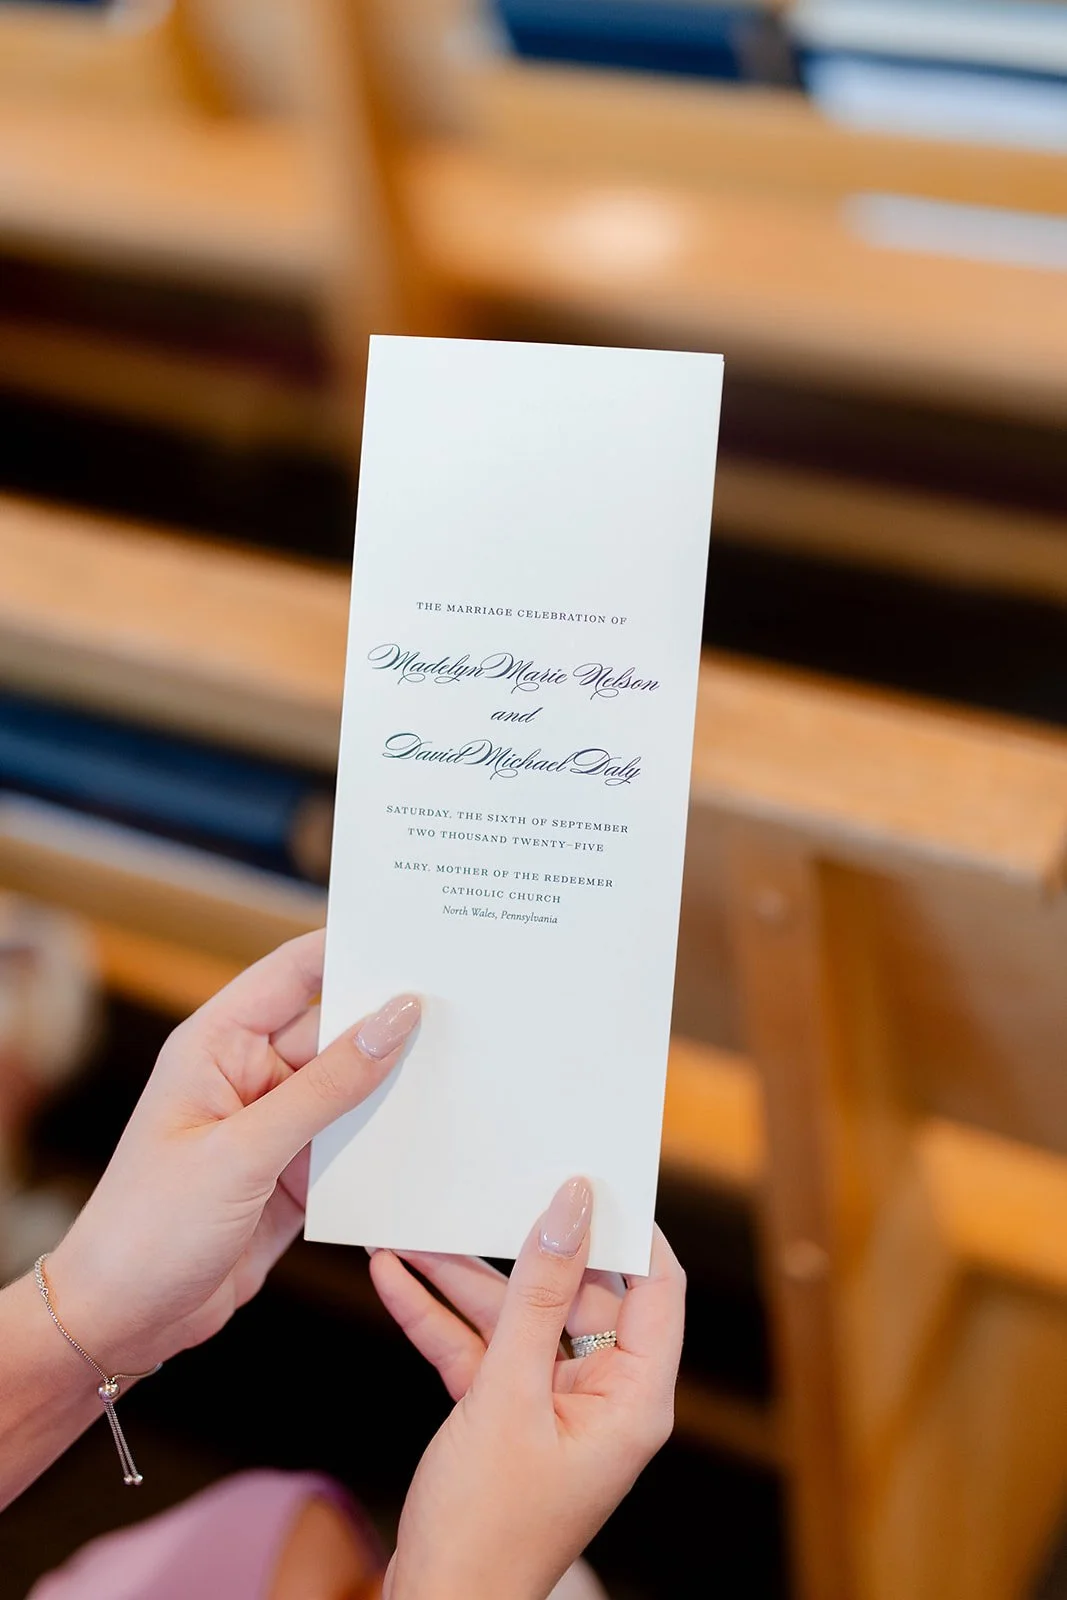 THE MARRIAGE CELEBRATION OF
Madelyn Marie Nelson
and
David Michael Daly
SATURDAY, THE SIXTH OF SEPTEMBER
TWO THOUSAND TWENTY-FIVE
MARY, MOTHER OF THE REDEEMER
CATHOLIC CHURCH
North Wales, Pennsylvania